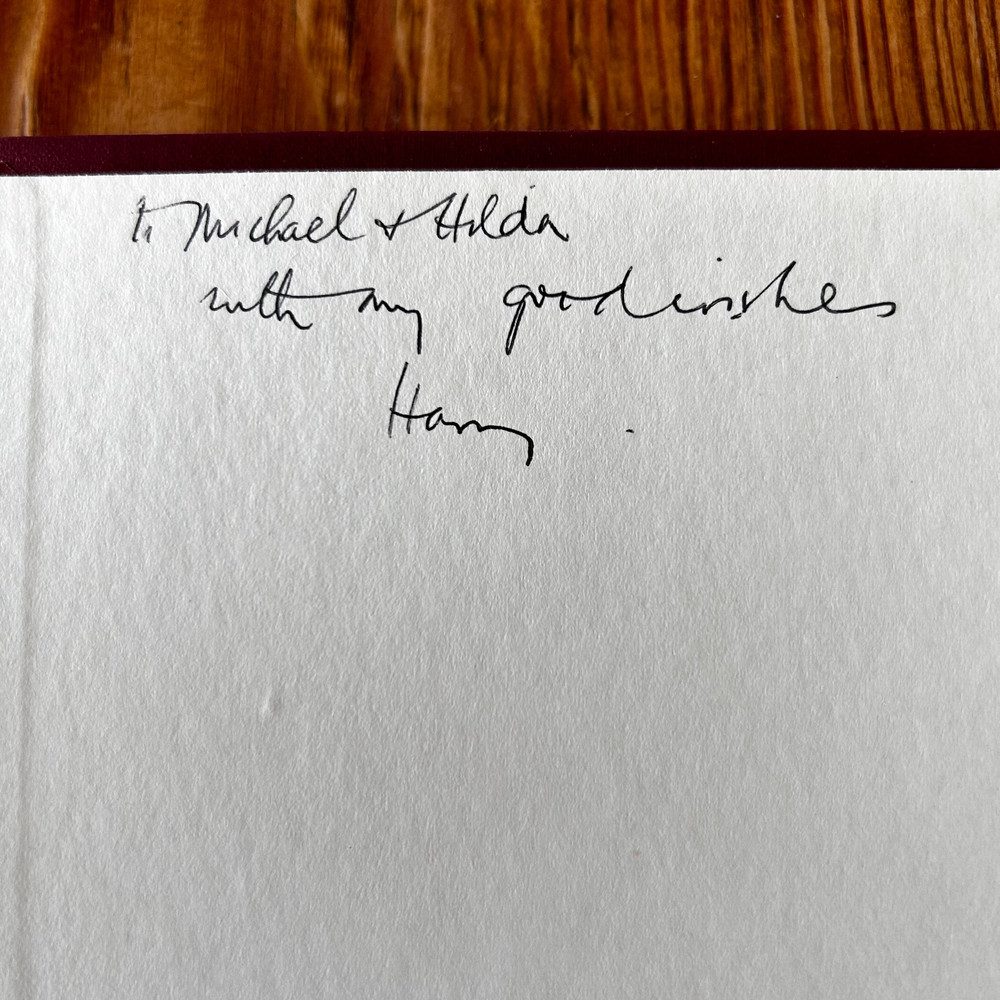 to Michael + Hilda
with my good wishes
Harry